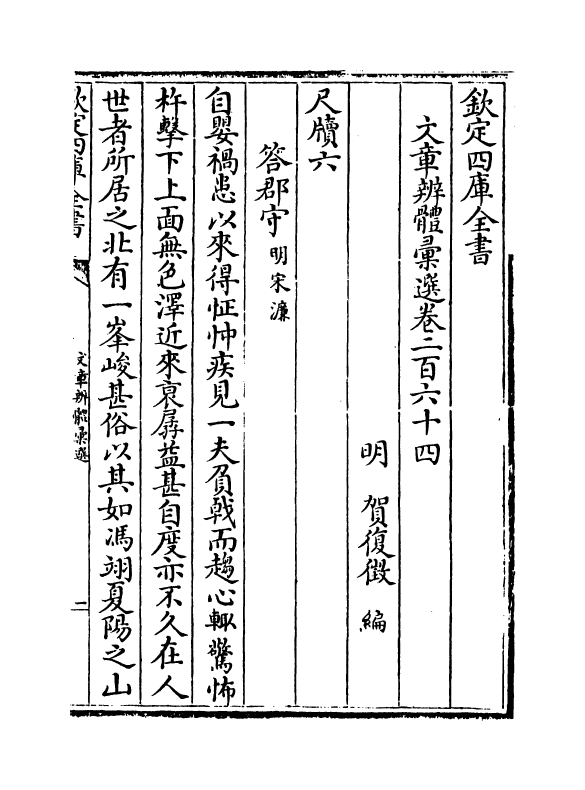 欽定四庫全書
文章辨體彙選卷二百六十四
明 賀復徵 編
尺牘六
答郡守 明宋濂
自嬰禍患以來得怔忡疾見一夫負戟而趨心輒驚怖
杵擊下上面無色澤近來衰孱益甚自度亦不久在人
世者所居之北有一峯峻甚俗以其如馮翊夏陽之山
欽定四庫全書
文章辨體彙選